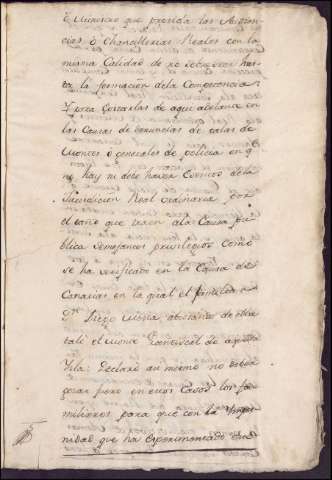 ô Ministro que presida las Audien
cias ô Chancillerias Reales con la
misma Calidad de no recurrir has
ta la formacion dela Competencia
Y para Cortarlas de aqui adelante en
las Causas de denuncias de talas de
Montes ô generales de policia en q
no hay ni debe haver Correos dela
Jurisdicion Real ordinaria por
el daño que traen ala Causa pu
blica semejantes privilegios como
se ha verificado en la Causa de
Canarias en la qual el familiar
Dn Diego
taló el Monte de aquella
Ysla: Declaró asi mismo no deben
gozar fuero en estos Casos los fa
miliares para que con la
nidad que ha esperimentado